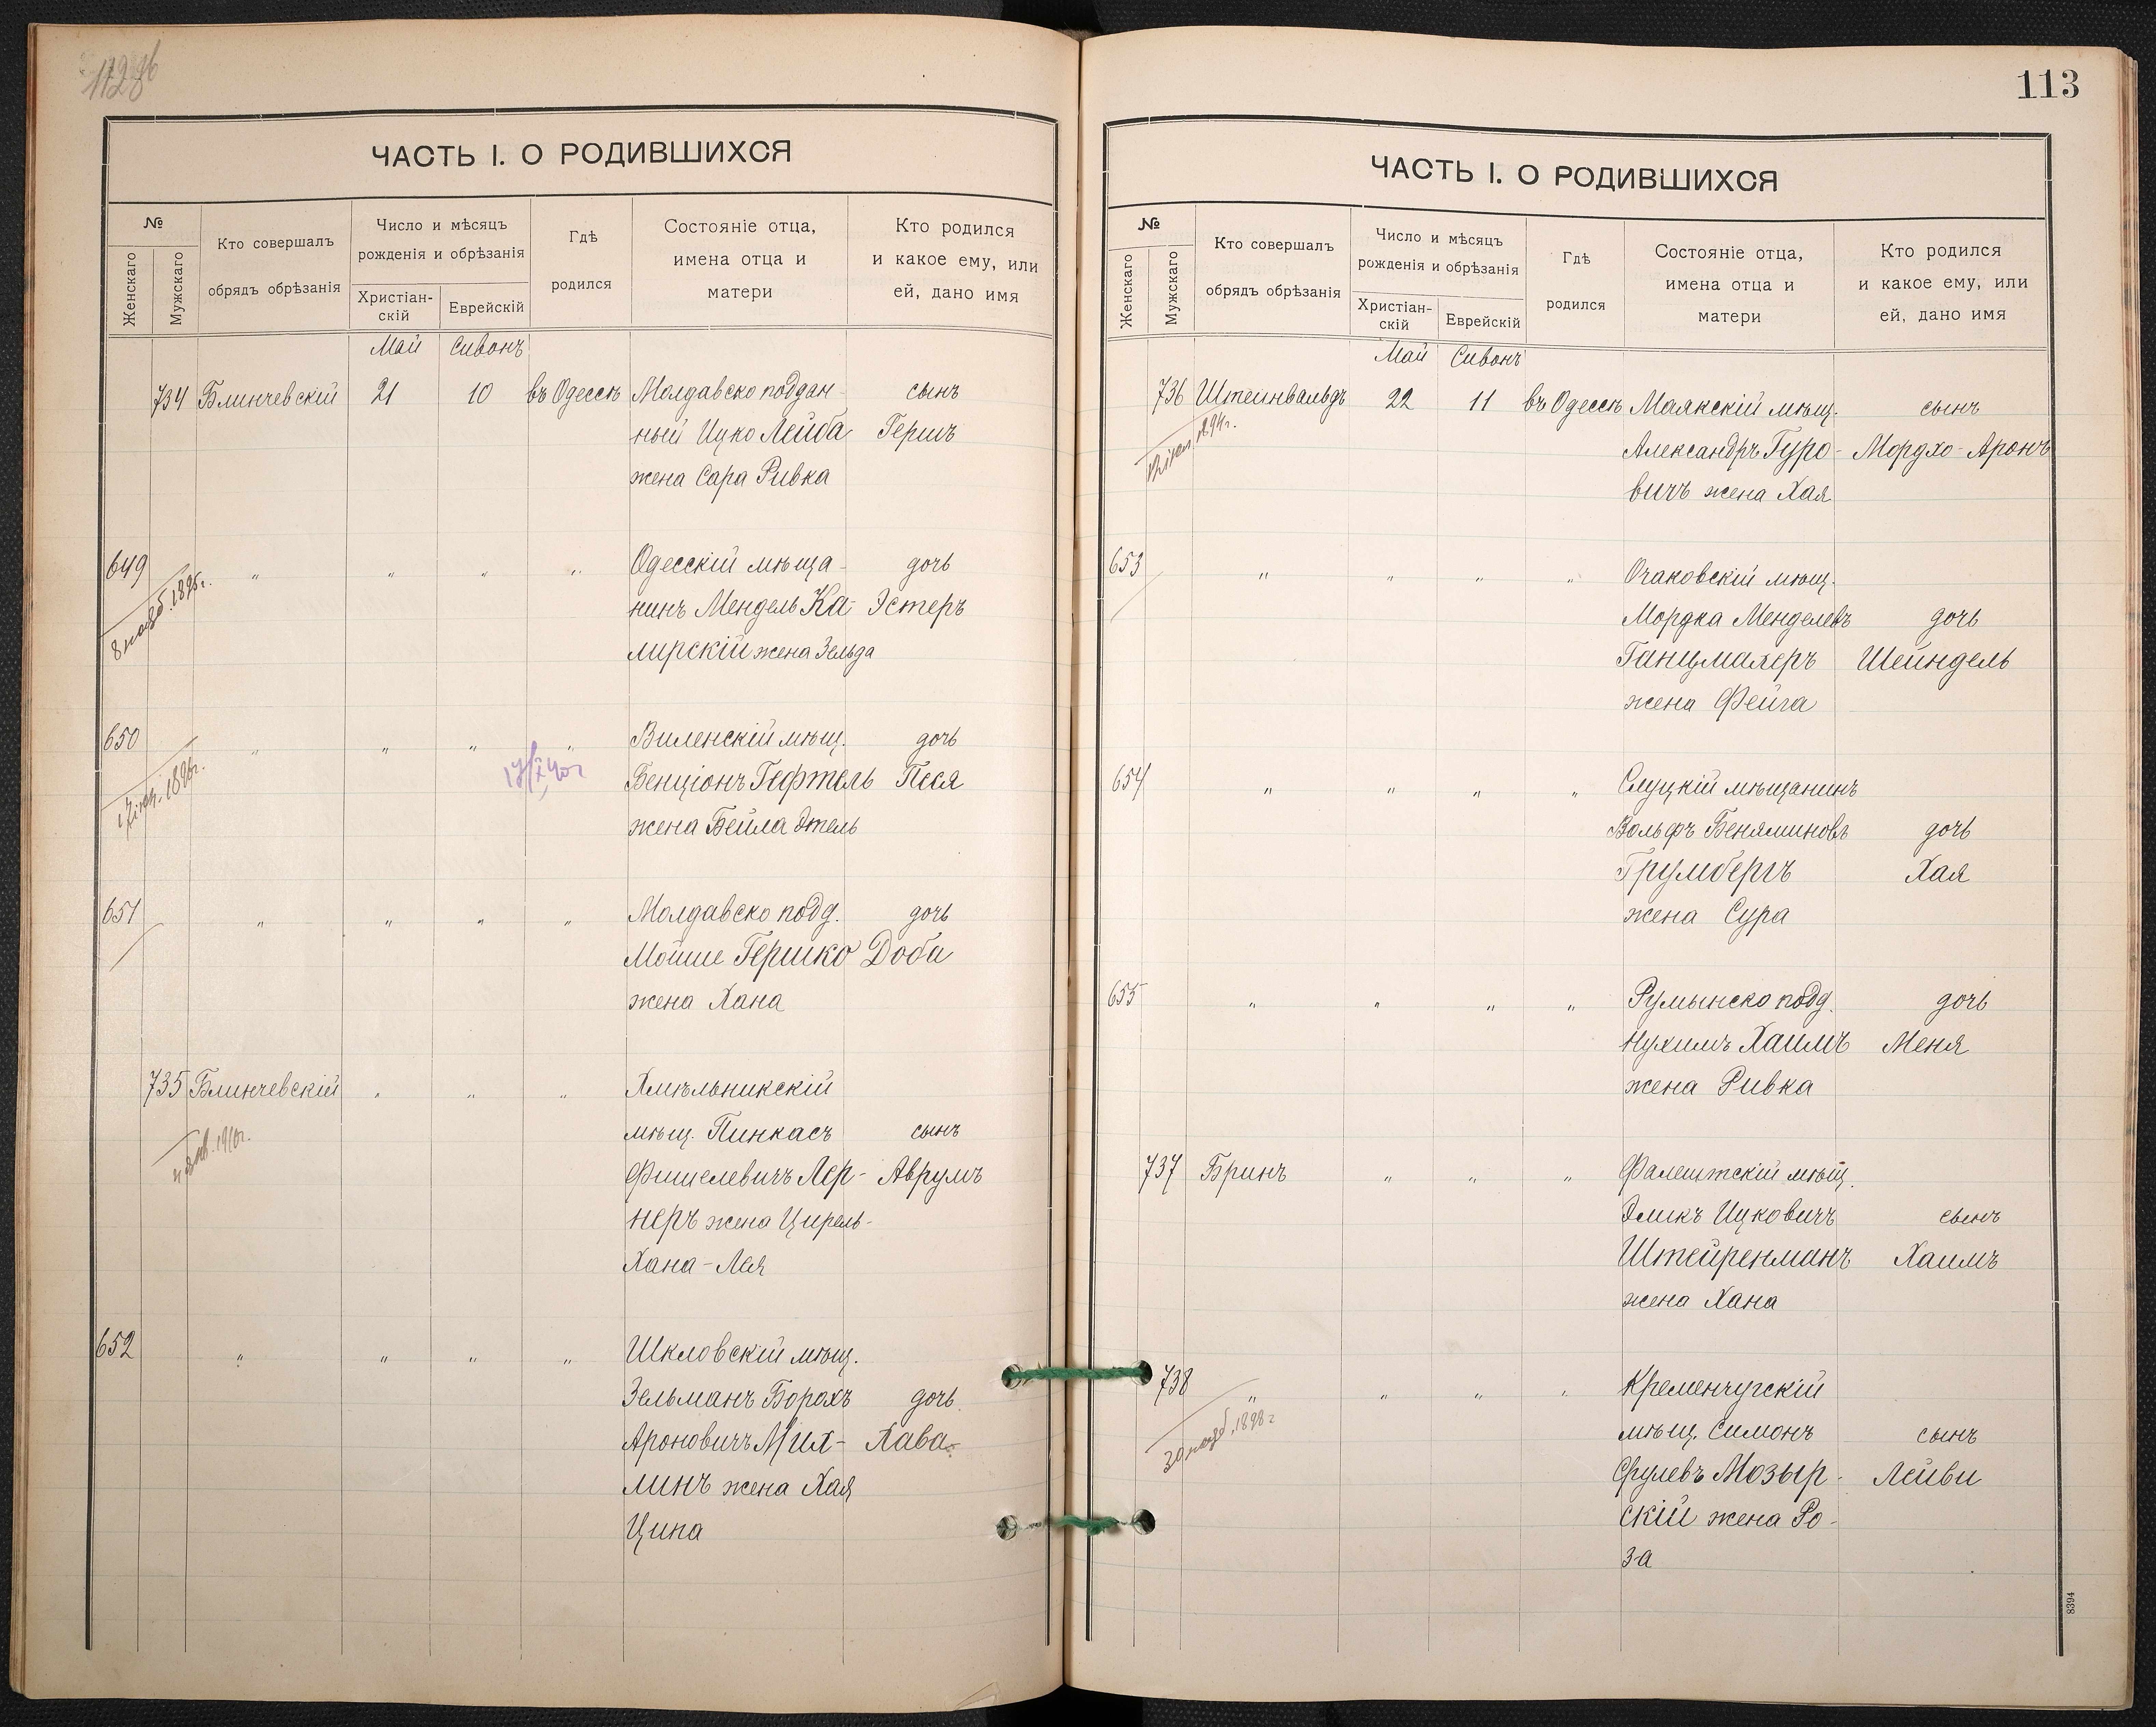 ЧАСТЬ I. О РОДИВШИХСЯ
№
Женскаго
Мужскаго
Кто совершалъ
обрядъ обрѣзанія
Число и мѣсяцъ
рожденія и обрѣзанія
Христіан-
скій
Еврейскій
Гдѣ
родился
Состояніе отца,
имена отца и
матери
Кто родился
и какое ему, или
ей, дано имя
Май Сивонъ
734 Блинчевскій 21 10 въ Одессѣ Молдавско поддан- сынъ
ный Ицко Лейба Гершъ
жена Сара Ривка
649 " " " " Одесскій мѣща- дочь
нинъ Мендель Ка- Эстеръ
лирскій жена Зельда
650 " " " " Виленскій мѣщ. дочь
Бенціонъ Гефтель Песя
жена Бейла Этель
651 " " " " Молдавско подд. дочь
Мойше Гершко Доба
жена Хана
735 Блинчевскій " " " Хмѣльникскій
мѣщ. Пинкасъ сынъ
Фишелевичъ Лер- Аврумъ
неръ жена Цирель-
Хана-Лея
652 " " " " Шкловскій мѣщ.
Зельманъ Борохъ дочь
Ароновичъ Мил- Хава
линъ жена Хая
Ципа
113
ЧАСТЬ I. О РОДИВШИХСЯ
№
Женскаго
Мужскаго
Кто совершалъ
обрядъ обрѣзанія
Число и мѣсяцъ
рожденія и обрѣзанія
Христіан-
скій
Еврейскій
Гдѣ
родился
Состояніе отца,
имена отца и
матери
Кто родился
и какое ему, или
ей, дано имя
Май Сивонъ
736 Штейнвальдъ 22 11 въ Одессѣ Маякскій мѣщ. сынъ
Александръ Гуро- Мордхо-Аронъ
вичъ жена Хая
653 " " " " Очаковскій мѣщ.
Мордка Менделевъ дочь
Ганцмахеръ Шейндель
жена Фейга
654 " " " " Слуцкій мѣщанинъ
Вольфъ Беняминовъ дочь
Грумбергъ Хая
жена Сура
655 " " " " Румынско подд. дочь
Нухимъ Хаимъ Меня
жена Ривка
737 Бринъ " " " Фалештскій мѣщ.
Эликъ Ицковичъ сынъ
Штейренманъ Хаимъ
жена Хана
738 " " " " Кременчугскій
мѣщ. Симонъ сынъ
Срулевъ Мозыр- Лейви
скій жена Ро-
за
8394